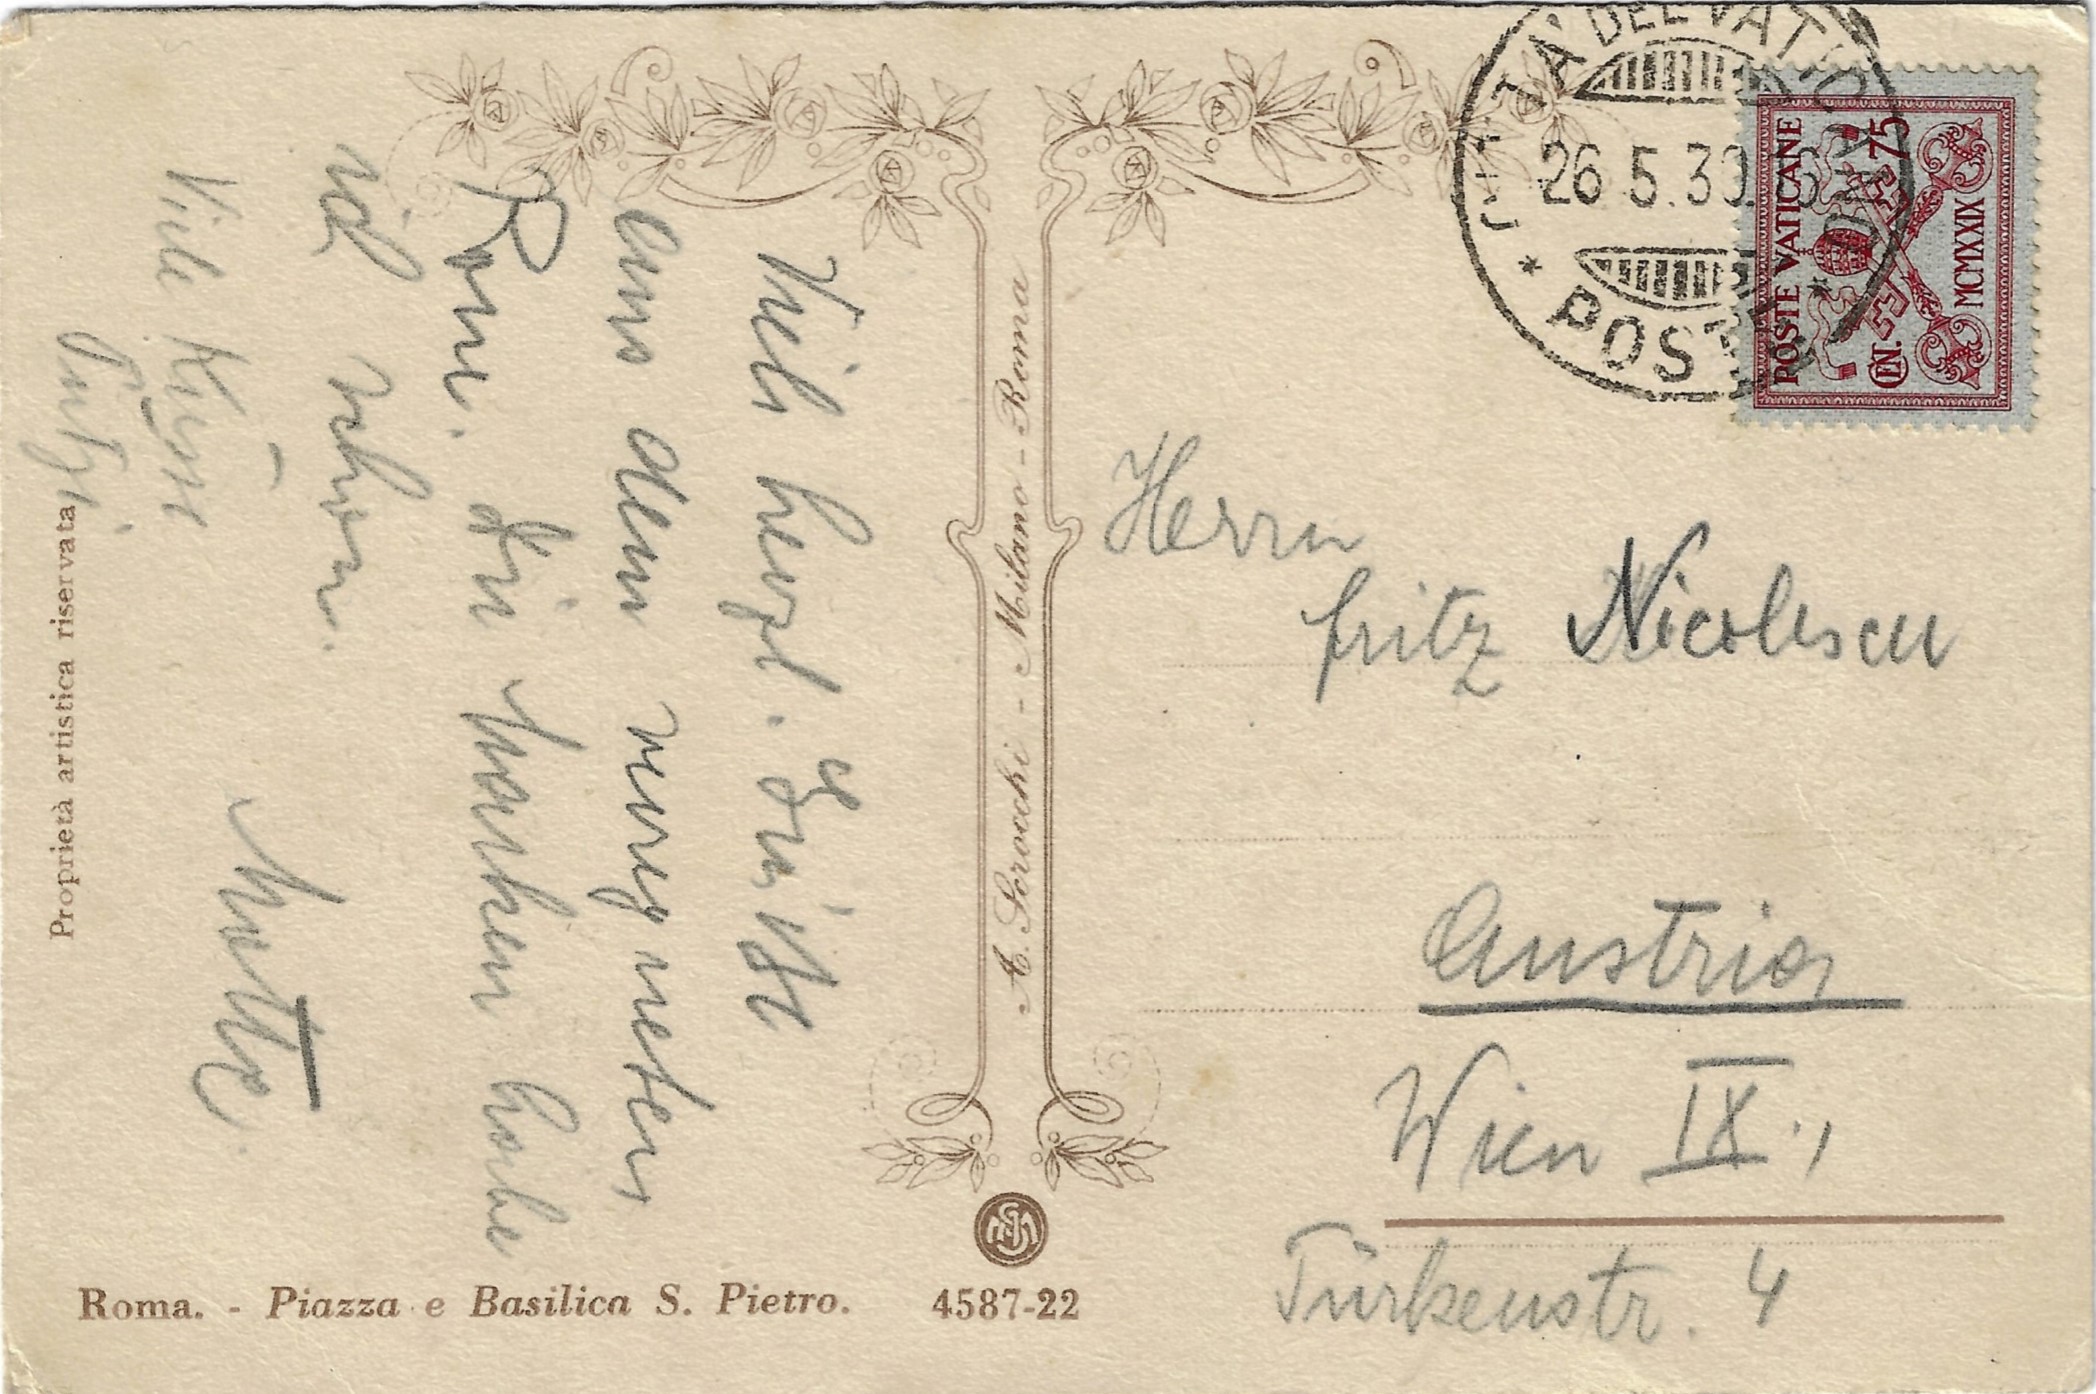 Viele herzl. Grüße
aus dem neug
Rom. Die Marken habe
ich schon.
Viele Küsse
Mutter.
Proprietà artistica riservata
A. Scrocchi - Milano - Roma
Roma. - Piazza e Basilica S. Pietro. 4587-22
CITTA' DEL VATICANO
26.5.30
POSTE
POSTE VATICANE
CENT. 75
MCMXXIX
Herrn
Fritz Nicolescu
Austria
Wien IX.,
Türkenstr. 4